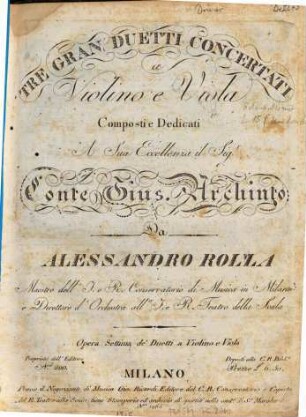 TRE GRAN DUETTI CONCERTATI
a
Violino e Viola
Composti e Dedicati
A Sua Eccellenza il Sigr.
Conte Gius. Archinto
Da
ALESSANDRO ROLLA
Maestro dell' I. e R. Conservatorio di Musica in Milano
e Direttore d'Orchestra all' I. e R. Teatro della Scala
Opera Settima de' Duetti a Violino e Viola
Proprietà dell' Editore
MILANO
Presso il Negoziante di Musica Gio. Ricordi Editore del C. R. Conservatorio e Copista